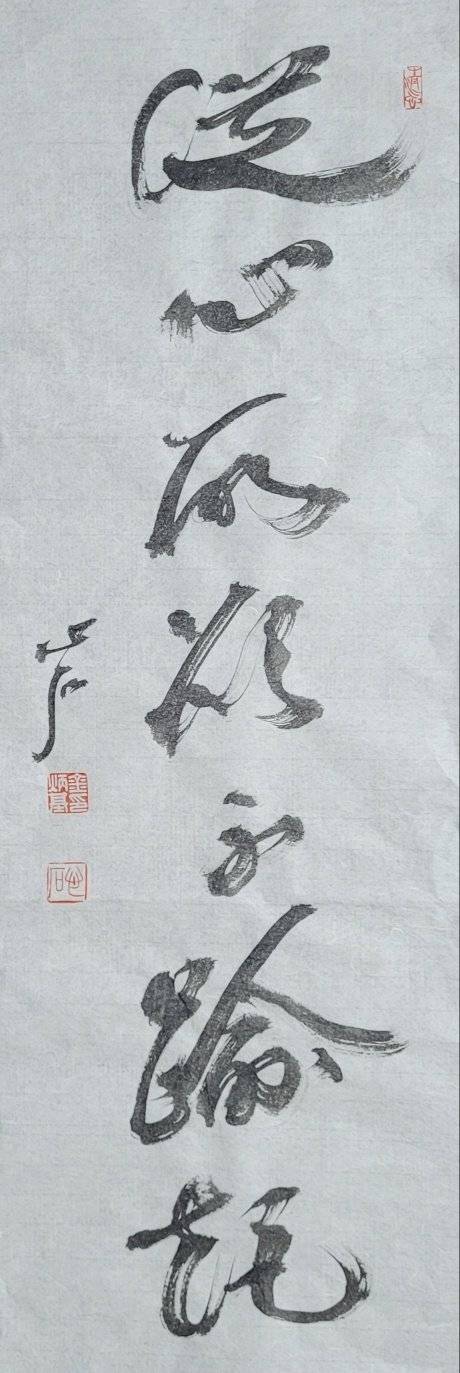 從心所欲不踰矩